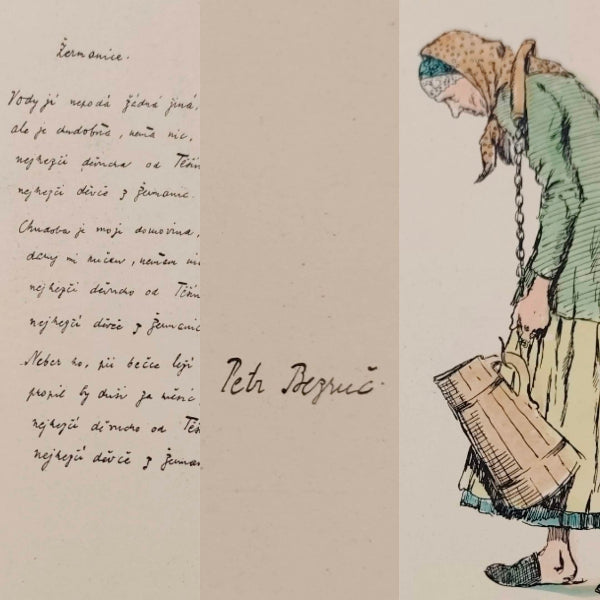 Žermanice.
Vody jí nepodá žádná jiná,
ale je chudobna, nemá nic,
nejhezčí děvucha od Těšín
nejhezčí děvče z Žermanic.
Chudoba je moji domovina,
dany mi ničem, nemám nic
nejhezčí děvucho od Těšín
nejhezčí děvče z Žermanic
Neber ho, pii bečce leží
propil by duši za měsíc
nejhezčí děvucho od Těš
nejhezčí děvče z Žerman
Petr Bezruč.